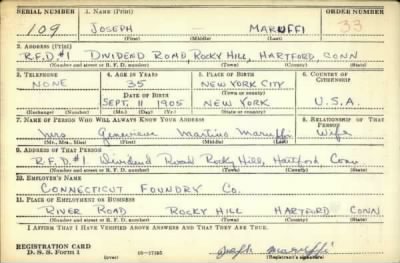 SERIAL NUMBER 1. NAME (Print) ORDER NUMBER
109 JOSEPH MARUFFI 33
(First) (Middle) (Last)
2. ADDRESS (Print)
R.F.D. #1 DIVIDEND ROAD, ROCKY HILL, HARTFORD, CONN
(Number and street or R. F. D. number) (Town) (County) (State)
3. TELEPHONE 4. AGE IN YEARS 5. PLACE OF BIRTH 6. COUNTRY OF CITIZENSHIP
NONE 35 NEW YORK CITY
DATE OF BIRTH (Town or county)
SEPT. 11 1905 NEW YORK U.S.A.
(Exchange) (Number) (Mo.) (Day) (Yr.) (State or country)
7. NAME OF PERSON WHO WILL ALWAYS KNOW YOUR ADDRESS 8. RELATIONSHIP OF THAT PERSON
Mrs Genevieve Martino Maruffi Wife
(Mr., Mrs., Miss) (First) (Middle) (Last)
9. ADDRESS OF THAT PERSON
R.F.D. #1 Dividend Road Rocky Hill, Hartford Conn
(Number and street or R. F. D. number) (Town) (County) (State)
10. EMPLOYER'S NAME
CONNECTICUT FOUNDRY CO.
11. PLACE OF EMPLOYMENT OR BUSINESS
RIVER ROAD ROCKY HILL HARTFORD CONN
(Number and street or R. F. D. number) (Town) (County) (State)
I AFFIRM THAT I HAVE VERIFIED ABOVE ANSWERS AND THAT THEY ARE TRUE.
REGISTRATION CARD
D. S. S. Form 1 (over) 16—17105 Joseph Maruffi
(Registrant's signature)